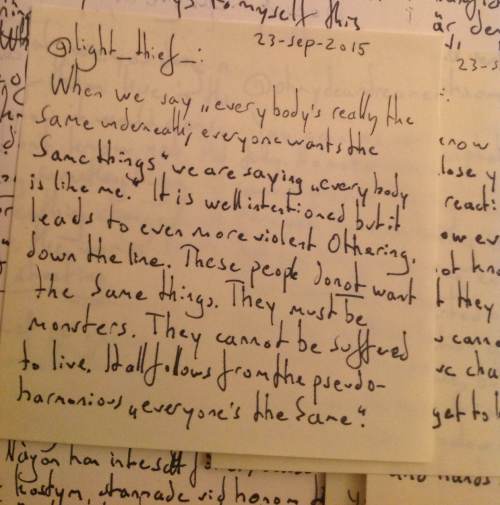 23-sep-2015
@light_thief_:
When we say „everybody's really the
same underneath, everyone wants the
same things" we are saying „everybody
is like me." It is well intentioned but it
leads to even more violent Othering,
down the line. These people do not want
the same things. They must be
monsters. They cannot be suffered
to live. It all follows from the pseudo-
harmonious „everyone's the same".
to myself this
är den
23-s
now
lose y
reacti
ow ev
they
get to
Någon har
kostym, stannade vid honom
and hands